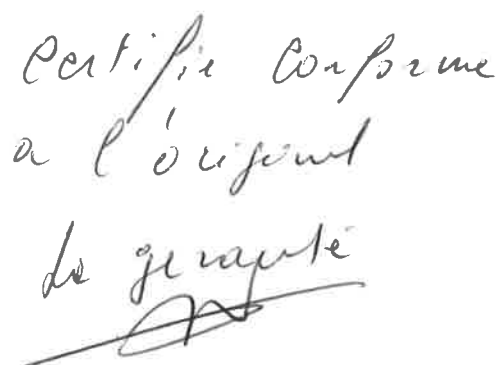 Certifie conforme
a l'original
La gerante